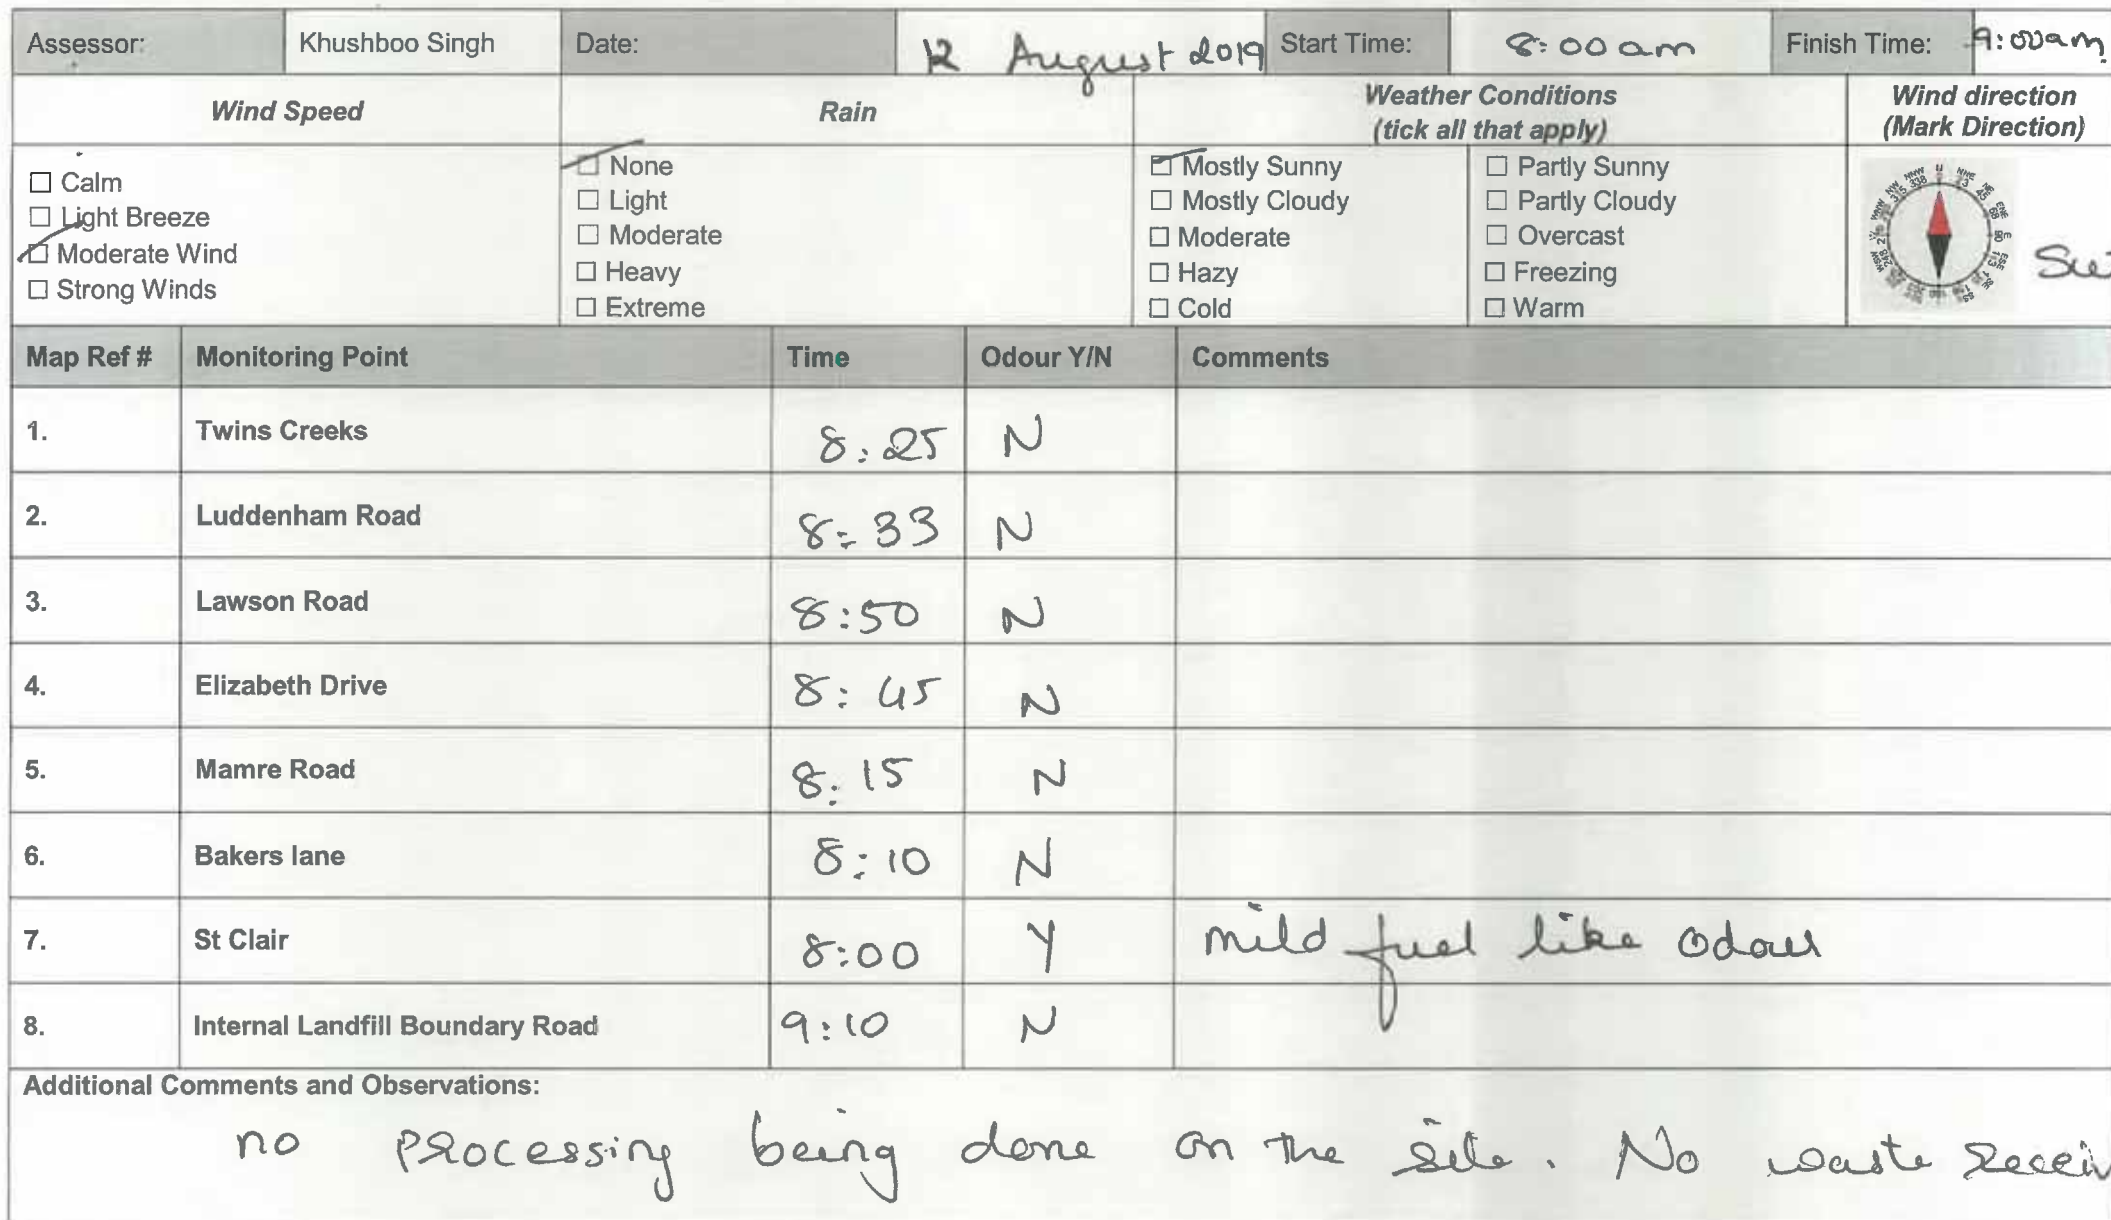 Assessor: Khushboo Singh Date: 12 August 2019 Start Time: 8:00 am Finish Time: 9:00am
Wind Speed Rain Weather Conditions (tick all that apply) Wind direction (Mark Direction)
Calm
Light Breeze
Moderate Wind
Strong Winds
None
Light
Moderate
Heavy
Extreme
Mostly Sunny
Mostly Cloudy
Moderate
Hazy
Cold
Partly Sunny
Partly Cloudy
Overcast
Freezing
Warm
Map Ref # Monitoring Point Time Odour Y/N Comments
1. Twins Creeks 8:25 N
2. Luddenham Road 8:33 N
3. Lawson Road 8:50 N
4. Elizabeth Drive 8:45 N
5. Mamre Road 8:15 N
6. Bakers lane 8:10 N
7. St Clair 8:00 Y mild fuel like odour
8. Internal Landfill Boundary Road 9:10 N
Additional Comments and Observations:
no processing being done on the site. No waste receiv